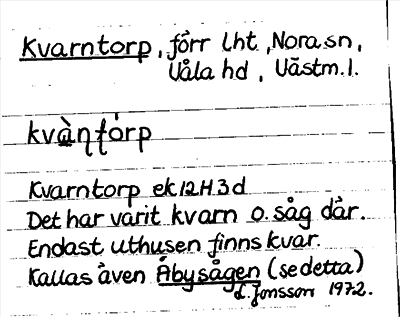 Kvarntorp, förr lht, Nora sn,
Våla hd, Västm. l.
kvàṇtórp
Kvarntorp ek 12H3d
Det har varit kvarn o. såg där.
Endast uthusen finns kvar.
Kallas även Åbysågen (se detta)
L. Jonsson 1972.